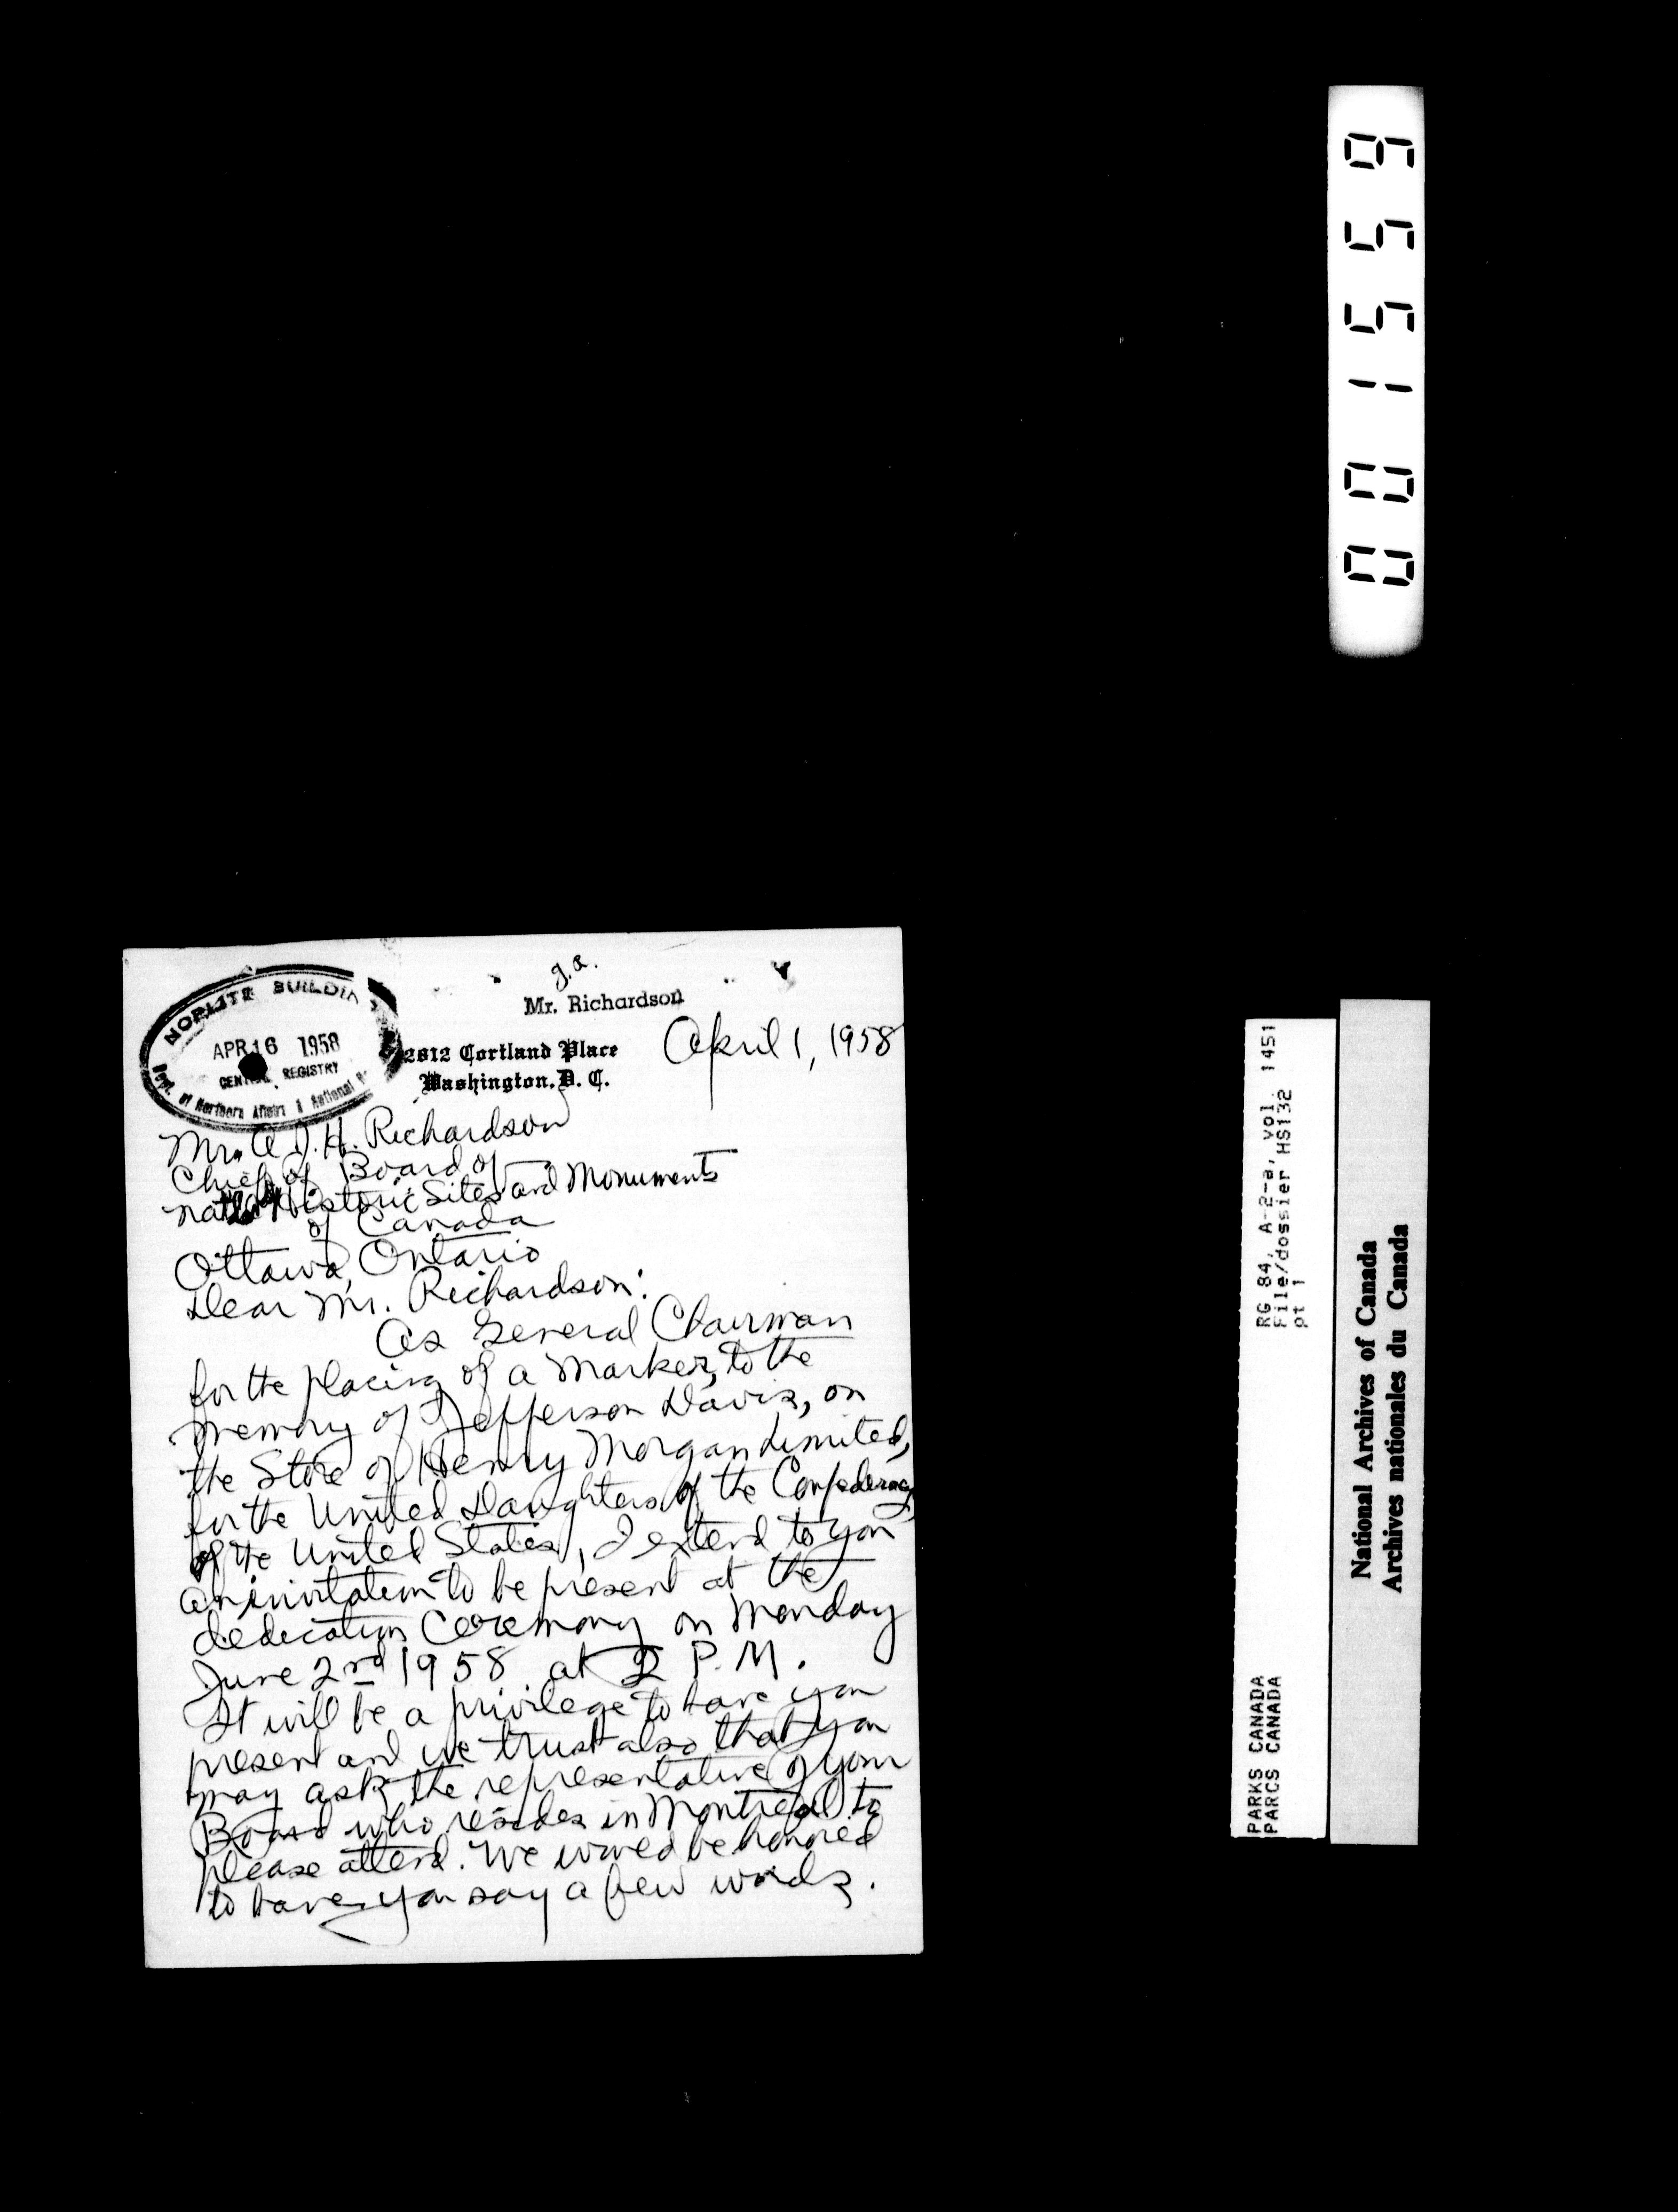 g.a.
Mr. Richardson
NORLITE BUILDIN
APR 16 1958
CENTRAL REGISTRY
Dept. of Northern Affairs & National
2812 Cortland Place
Washington, D. C.
April 1, 1958
Mr. A J. H. Richardson
Chief of Board of
Historic Sites and Monuments
of Canada
Ottawa, Ontario
Dear Mr. Richardson:
As General Chairman
for the placing of a Marker, to the
memory of Jefferson Davis, on
the Store of Henry Morgan Limited,
for the United Daughters of the Confederacy
of the United States, I extend to you
an invitation to be present at the
dedication Ceremony on Monday
June 2nd 1958 at 2 P.M.
It will be a privilege to have you
present and we trust also that you
may ask the representative of your
Board who resides in Montreal to
please attend. We would be honored
to have you say a few words.
001559
RG 84, A-2-a, vol. 1451
File/dossier HS132
pt 1
PARKS CANADA
PARCS CANADA
National Archives of Canada
Archives nationales du Canada